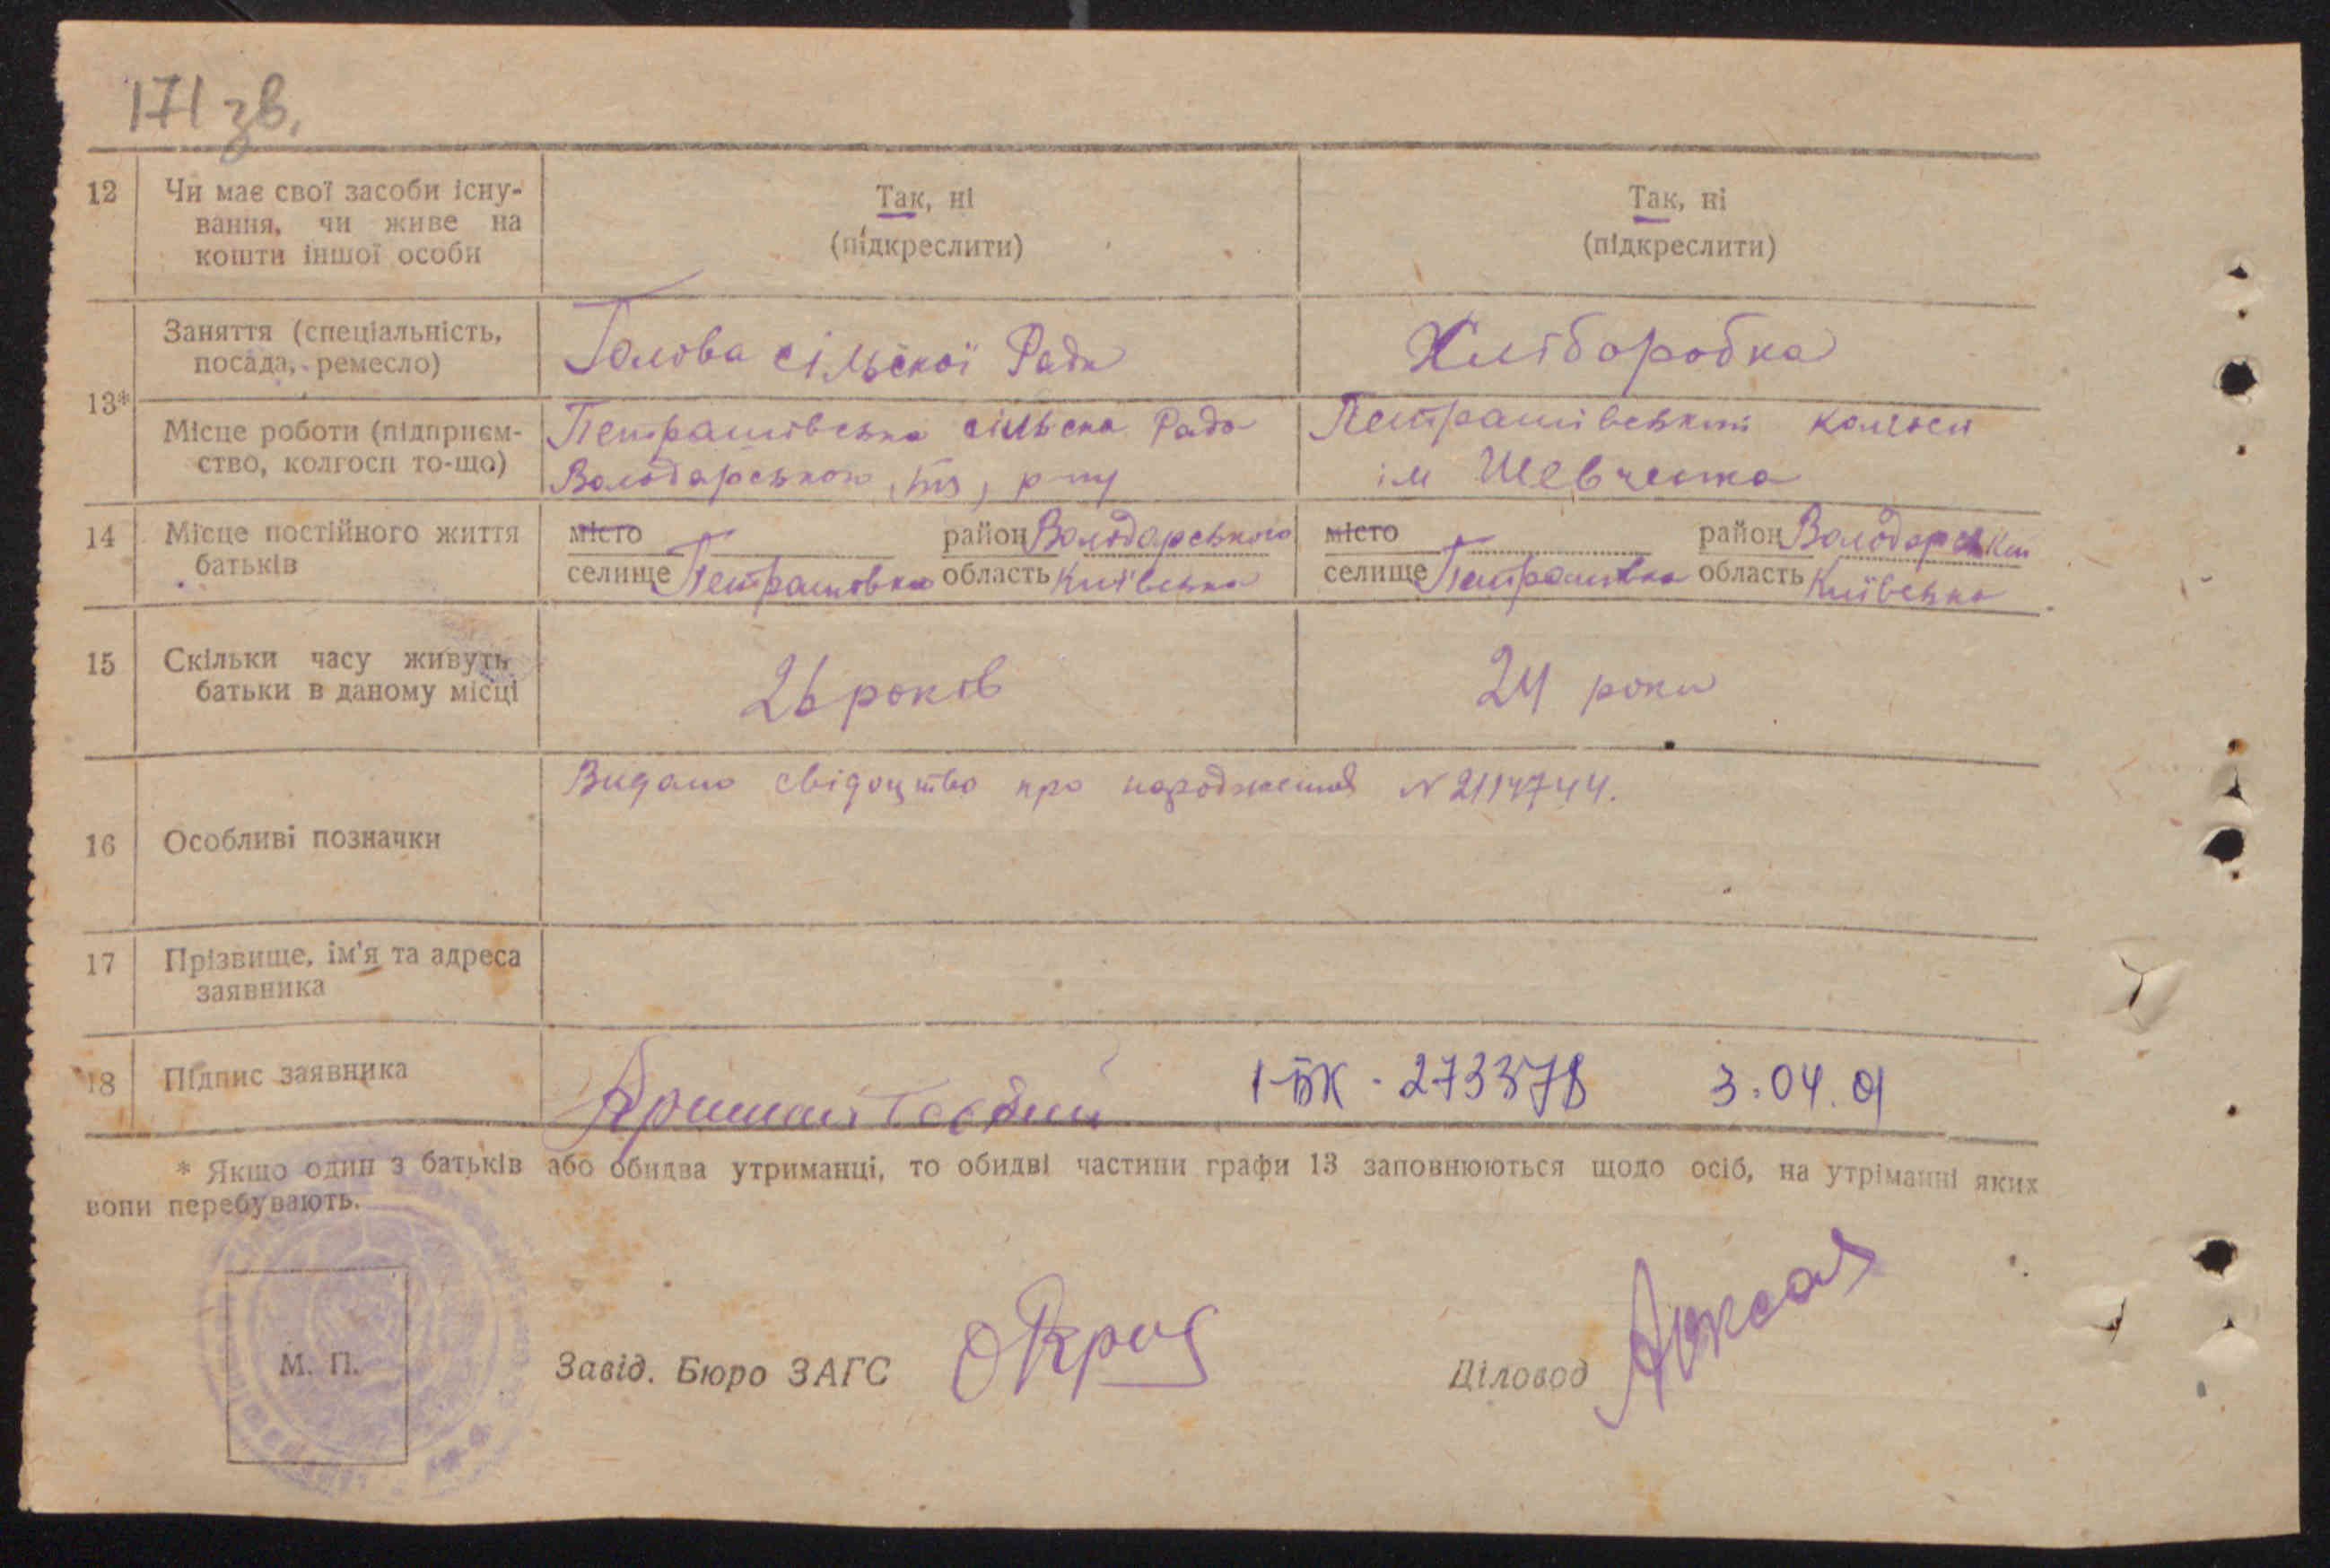 171 зв.
12 Чи має свої засоби існу- Так, ні Так, ні
вання, чи живе на (підкреслити) (підкреслити)
кошти іншої особи
Заняття (спеціальність, Голова сільської Ради Хліборобка
посада, ремесло)
13*
Місце роботи (підприєм- Петрашівська сільска Рада Петрашівський колгосп
ство, колгосп то-що) Володарського р-ну ім Шевченка
14 Місце постійного життя місто район Володарського місто район Володарський
батьків селище Петрашовка область Київська селище Петрашовка область Київська
15 Скільки часу живуть 26 років 24 роки
батьки в даному місці
Видано свідоцтво про народження N 2114744.
16 Особливі позначки
17 Прізвище, ім'я та адреса
заявника
18 Підпис заявника 1-БК - 273378 3.04.01
* Якщо один з батьків або обидва утриманці, то обидві частини графи 13 заповнюються щодо осіб, на утріманні яких
вони перебувають.
М. П. Завід. Бюро ЗАГС Діловод